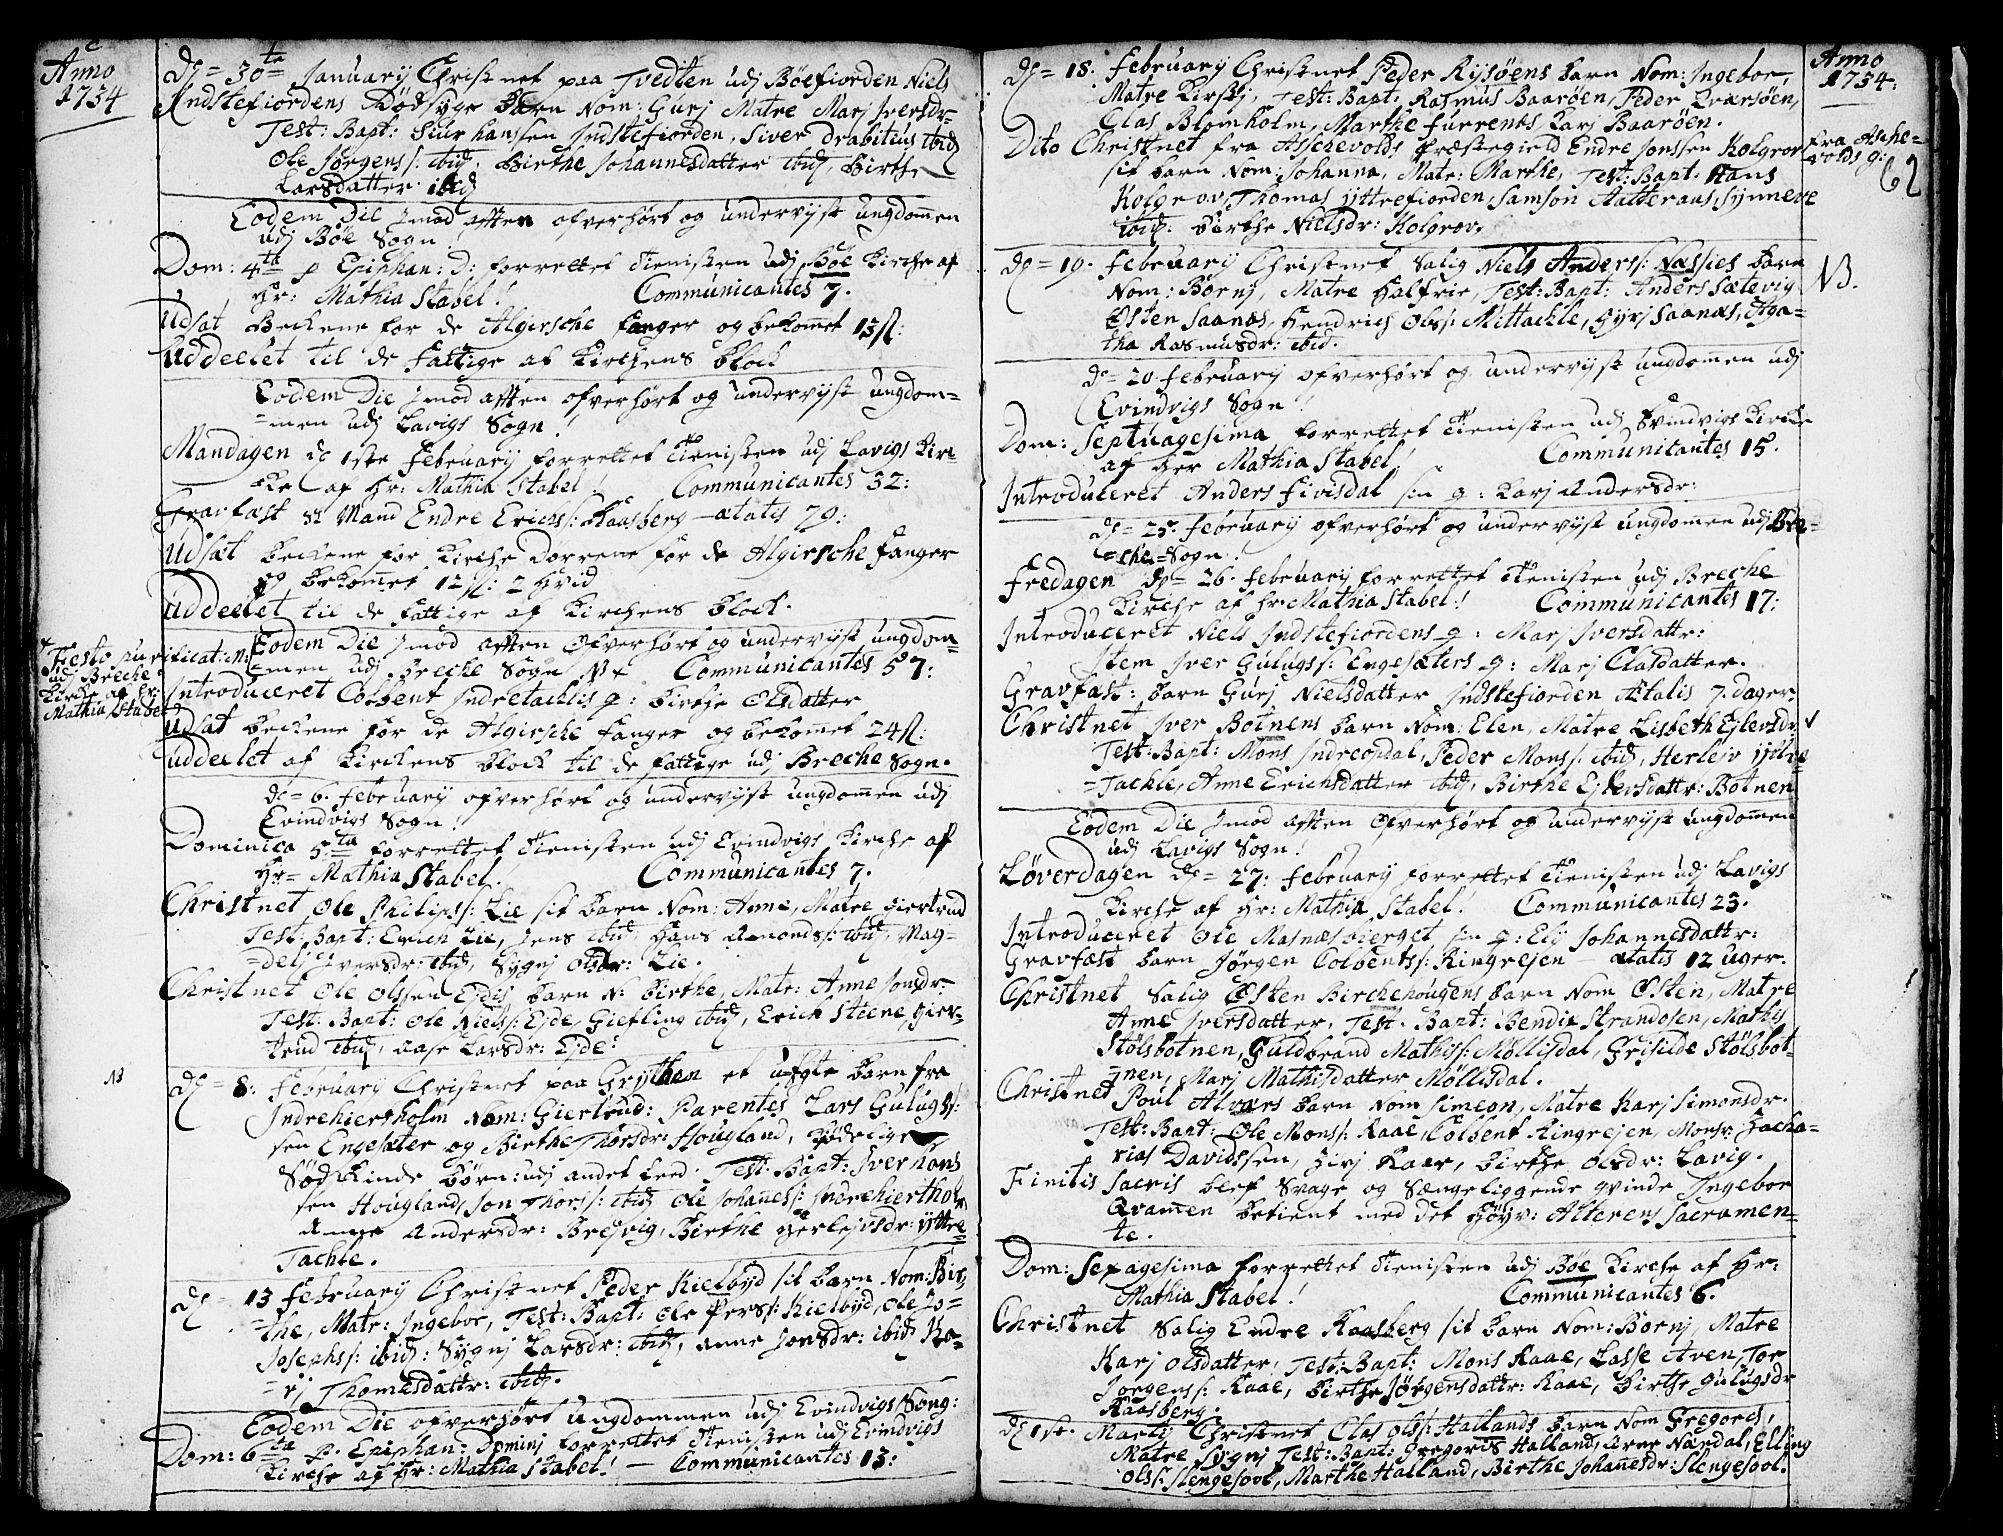 Anno
1734
dend 30te January Christnet paa Tvedten udj Böefiorden Niels
Indstefiordens Dödsyge Barn Nom: Gurj Matre Marj Iversdr:
Test: Bapt: Siur Hanssen Indstefiorden, Siver Drabitius ibid
Ole Jörgens: ibid, Birthe Johannesdatter ibid, Birthe
Larsdatter ibid
Eodem Die Imod afften ofverhört og undervijst ungdommen
udj Böe Sogn!
Dom: 4ta p Epiphan: D: forrettet Tienisten udj Böe Kirche af
Hr: Mathia Stabel! Communicantes 7.
Udsat Beckene for de Algirsche fanger og bekommet 13 sl:
Uddeelet til de fattige af Kirchens Block
Eodem Die Imod afften ofverhört og undervijst ungdom=
=men udj Lavigs Sogn!
Mandagen de 1ste February forrettet Tienisten udj Lavigs Kir=
ke af Hr: Mathia Stabel! Communicantes 32:
Gravfæst en Mand Endre Erichs: Raasberg — ætatis 79:
Udsæt beckene for Kirche Dörrene for de Algirsche fanger
og bekommet 12 sl: 2 Hvid
Uddeelet til de fattige af Kirchens block.
Eodem Die Imod afften ofverhört og undervijst ungdom=
=men udj Breche Sogn Communicantes 57:
Festo purificat: M:
udj Breche
Kirche af Hr:
Mathia Stabel
Introduceret Colbent Indretachles q: Birthe Olsdatter
Udsat beckene for de Algirsche fanger og bekommet 24 sl:
Uddeelet af Kirckens block til de fattige udj Breche Sogn.
de= 6. February ofverhört og undervijst ungdommen udj
Evindvigs Sogn!
Dominica 5.ta forrettet Tienisten udj Evindvigs Kirche af
Hr= Mathia Stabel! Communicantes 7.
Christnet Ole Philips: Lie sit Barn Nom: Anne, Matre Giertrud
Test: Bapt: Erich Lie, Jens ibid, Hans Amonds: ibid, Mag=
=delj Iversdr: ibid, Sygnj Olsdr: Lie.
Christnet Ole Olssen Ejdis barn N: Birthe, Matr: Anne Jonsdr:
Test: Bapt: Ole Niels: Ejde, Giefling ibid, Erich Steene, Gier=
trud ibid, Aase Larsdr: Ejde:
NB
de= 8: February Christnet paa Grÿthen et uægte barn fra
Indrehiersholm Nom: Giertrud: Parentes Lars Gulugs:
sen Engesæter og Birthe Thorsdr: Hougland,
Sødskinde Börn: udj andet Leed. Test: Bapt: Iver Hans
sen Hougland, Jon Thors: ibid, Ole Johannes: Indrehiertholm
Anne Andersdr: Brejvig, Birthe Herlejvsdr: ÿttre
Tachle.
de= 13 February Christnet Peder Kielbÿd sit barn Nom: Bir=
=the, Matr: Ingebor, Test: Bapt: Ole Pers: Kielbÿd, Ole Jo=
Josephs: ibid: Sygnj Larsdr: ibid, Anne Jonsdr: ibid, Ka=
=rj Thomasdattr: ibid.
Eodem Die ofverhört ungdommen udj Evindvigs Song:
Dom: 6ta p. Epiphan: Dominj forrettet Tienisten udj Evindvigs
Kirche af Hr: Mathia Stabel! — Communicantes 13:
de= 18. February Christnet Peder Rÿsöens barn Nom: Ingebor,
Matre Kirstj, Test: Bapt: Rasmus Baaröen, Peder Qværsöen,
Clas Blomholm, Marthe Furrenes, Karj Baaröen.
Anno
1734.
Dito Christnet fra Asckevolds Præstegield Endre Jonssen Kolgrov
sit barn Nom: Johanna, Matr: Marthe, Test: Bapt. Hans
Kolgrov, Thomas ÿttrefiorden, Samson Aatteraas, Synneve
ibid: Birthe Nielsdr: Kolgrov.
fra Asche=
volds g:
62
de= 19. February Christnet Salig Niels Anders: Næssies barn
Nom: Börnj, Matre Halfrie, Test: Bapt: Anders Sætevig
Østen Saanæs, Hendrich Obs: Mittachle, Gyrj Saanæs, Aga=
tha Rasmusdr: ibid.
NB.
de= 20 February ofverhört og undervijst ungdommen udj
Evindvigs Sogn!
Dom: Septuagesima forrettet Tienisten udj Evindvigs Kirche
af Her Mathia Stabel! Communicantes 15.
Introduceret Anders Fivisdal sin q: Karj Andersdr:
de= 25. February ofverhört og undervijst ungdommen udj Bre=
=che=Sogn!
Fredagen de= 26. February forrettet Tienisten udj Breche
Kirche af Hr: Mathia Stabel! Communicantes 17:
Introduceret Niels Indstefiordens q: Marj Iversdattr:
Item Iver Gulugs: Engesæters q: Marj Clasdatter.
Gravfæst: barn Gurj Nielsdatter Indstefiorden Ætatis 7. dager.
Christnet Iver Botnens barn Nom: Elen, Matre Lisbeth Ejlevsdr:
Test: Bapt: Mons Indreopdal, Peder Mons: ibid, Herlejv ÿttre
=Tachle, Anne Erichsdatter ibid, Birthe Ejlevsdattr: Botnen
Eodem Die Imod afften ofverhört og undervijst ungdommen
udj Lavigs Sogn!
Löverdagen de= 27: February forrettet Tienisten udj Lavigs
Kirche af Hr: Mathia Stabel! Communicantes 23.
Introduceret Ole Masnæsbierget sin q: Elj Johannesdattr:
Gravfæst barn Jörgen Colbents: Ringrejen — ætatis 12 Uger.
Christnet Salig Østen Birchehougens barn Nom Østen, Matre
Anne Iversdatter, Test. Bapt: Bendix Strandosen, Mathis
Stölsbotnen, Guldbrand Mathis: Möllisdal, Griside Stölsbot=
=nen, Marj Mathisdatter Möllisdal.
Christnet Poul Alværs barn Nom Simeon, Matre Karj Simonsdr.
Test: Bapt: Ole Mons: Raae, Colbent Ringrejen, Monsr: Zacha=
rias Davidssen, Zirj Raae, Birthe Olsdr: Lavig.
Finitis Sacris blef Svage og Sængeliggende qvinde Ingebor
Qvamen betient med det Höyv: Alterens Sacramen=
te.
Dom: Sexagesima forrettet Tienisten udj Böe Kirche af Hr:
Mathia Stabel! Communicantes 6.
Christnet Salig Endre Raasberg sit barn Nom: Börnj, Matre
Karj Olsdatter, Test: Bapt: Mons Raae, Lasse Aven, Tor
Jörgens: Raae, Birthe Jörgensdattr: Raae, Birthe Gulugsdr
Raasberg.
de 1ste Martij Christnet Clas Ols: Hallands barn Nom Gregoris,
Matre Sygnj Test: Bapt: Gregoris Halland, Arne Nærdal, Elling
Ols: Slengesool, Marthe Halland, Birthe Johannesdr: Slengesool.